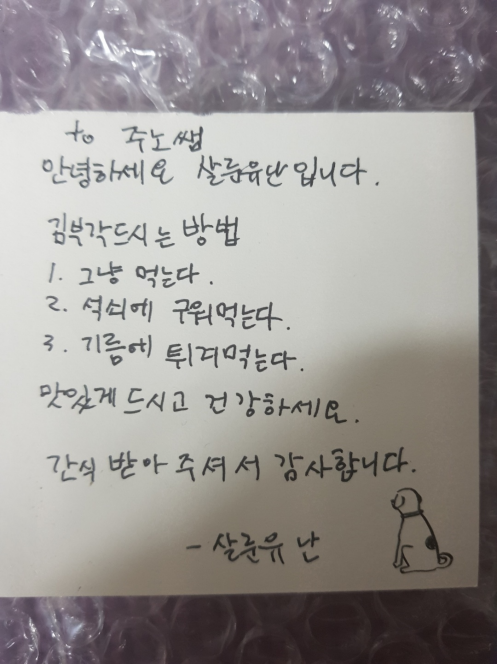 to 주노쌤
안녕하세요 살룬유난입니다.
김부각드시는 방법
1. 그냥 먹는다.
2. 석쇠에 구워먹는다.
3. 기름에 튀겨먹는다.
맛있게 드시고 건강하세요.
간식 받아 주셔서 감사합니다.
- 살룬유난